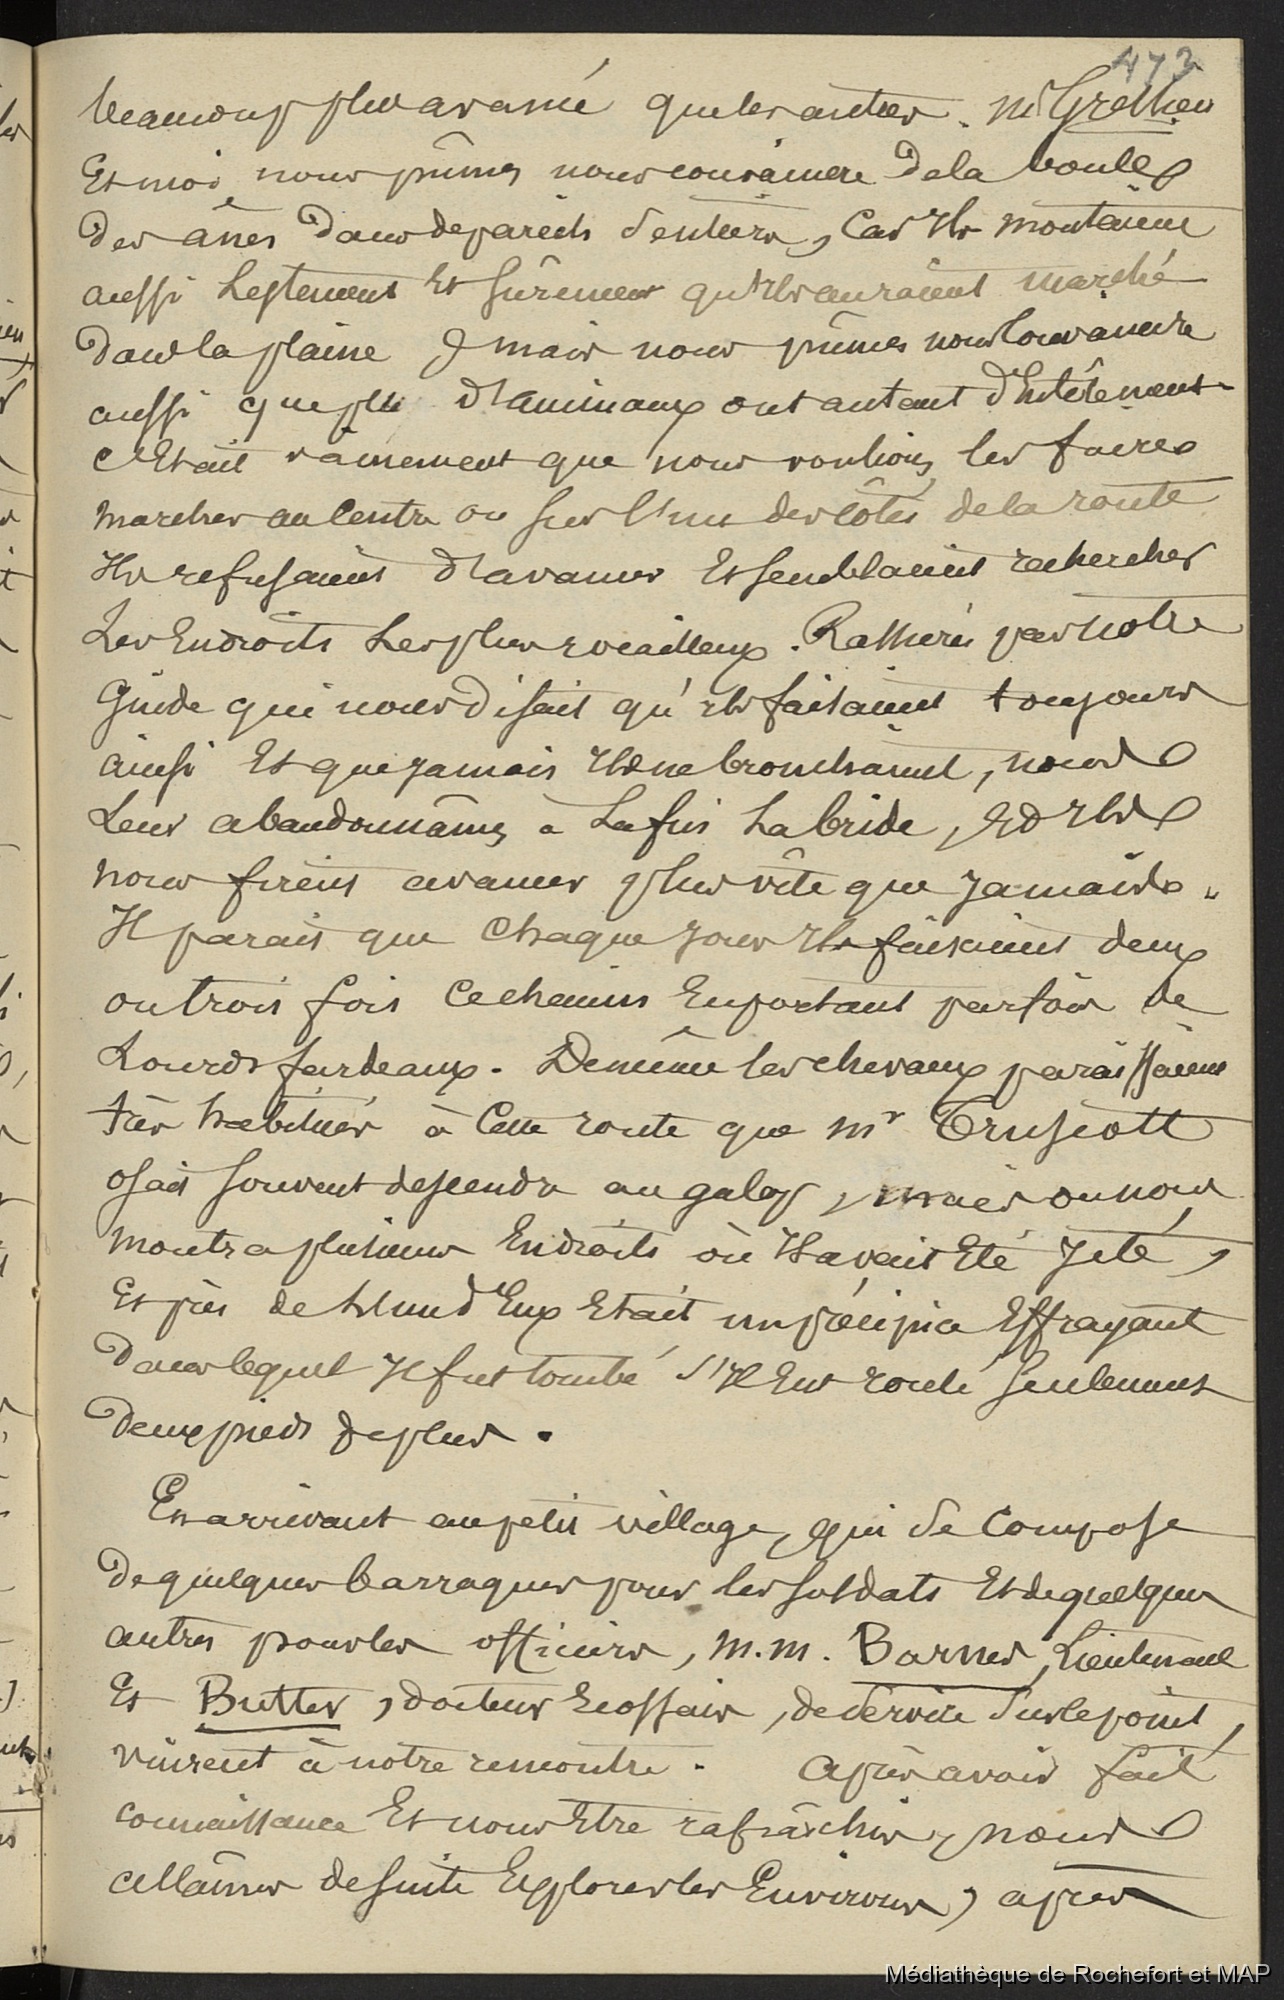 473
beaucoup plus avancé que les autres. Mr Grethen
Et moi nous pûmes nous convaincre de la bonté
des ânes dans de pareils sentiers, car Ils montaient
aussi lestement Et sûrement qu'Ils auraient marché
dans la plaine ; mais nous pûmes nous convaincre
aussi que peu d'animaux ont autant d'Entêtement.
C'Etait vainement que nous voulions les faire
marcher au Centre ou sur l'un des côtés de la route
Ils refusaient d'avancer Et semblaient rechercher
Les Endroits Les plus rocailleux. Rassurés par notre
Guide qui nous disait qu'Ils faisaient toujours
ainsi Et que jamais Ils ne bronchaient, nous
Leur abandonnâmes à La fin La bride, Et Ils
nous firent avancer plus vîte que jamais.
Il parait que Chaque jour Ils faisaient deux
ou trois fois Ce chemin En portant parfois de
Lourds fardeaux. De même les chevaux paraissaient
très habitués à Cette route que Mr Truscott
osait souvent descendre au galop, mais on nous
montra plusieurs Endroits où Il avait Eté jeté,
Et près de L'un d'Eux Etait un précipice Effrayant
dans lequel Il fut tombé s'Il Eut roulé seulement
deux pieds de plus.
En arrivant au petit village, qui se Compose
de quelques barraques pour les soldats Et de quelques
autres pour les officiers, M.M. Barnes, Lieutenant
Et Butter, docteur Ecossais, de service sur le point,
vinrent à notre rencontre. Après avoir fait
connaissance Et nous Etre rafraîchis, nous
allâmes de suite Explorer les Environs, après
Médiathèque de Rochefort et MAP